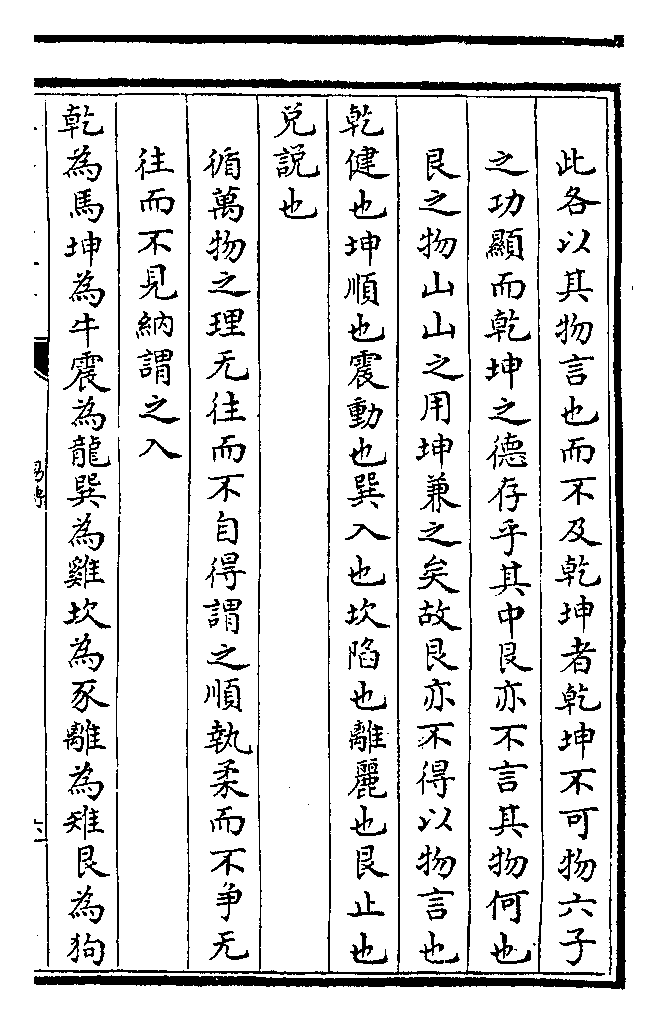 此各以其物言也而不及乾坤者乾坤不可物六子
之功顯而乾坤之德存乎其中艮亦不言其物何也
艮之物山山之用坤兼之矣故艮亦不得以物言也
乾健也坤順也震動也巽入也坎陷也離麗也艮止也
兌說也
循萬物之理无往而不自得謂之順執柔而不爭无
往而不見納謂之入
乾為馬坤為牛震為龍巽為雞坎為豕離為雉艮為狗